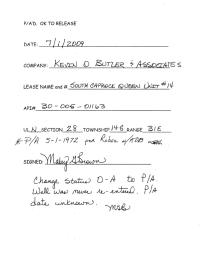 P/A'D, OK TO RELEASE
DATE: 7/1/2009
COMPANY: KEVIN O BUTLER & ASSOCIATES
LEASE NAME and # SOUTH CAPROCK QUEEN UNIT #14
API# 30-005-01163
UL N SECTION 28 TOWNSHIP 14S RANGE 31E
P/A 5-1-1972 per
SIGNED: Mary Brown
Change status O-A to P/A.
Well was never re-entered. P/A
date unknown.